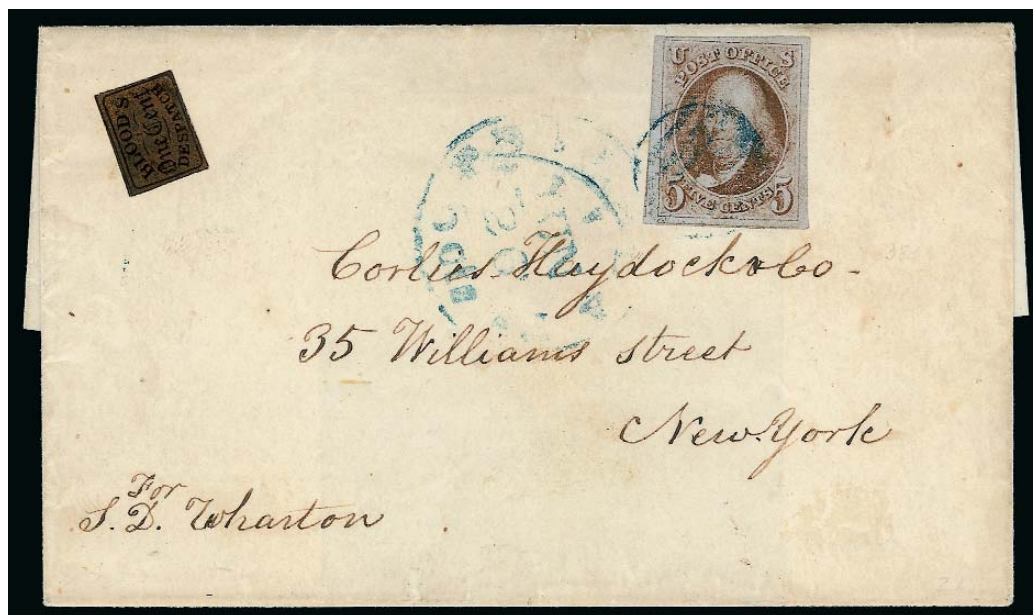 BLOOD'S
One Cent
DESPATCH
U S
POST OFFICE
5 FIVE CENTS 5
Corlies Haydock & Co -
35 Williams street
New York
For
S. D. Wharton